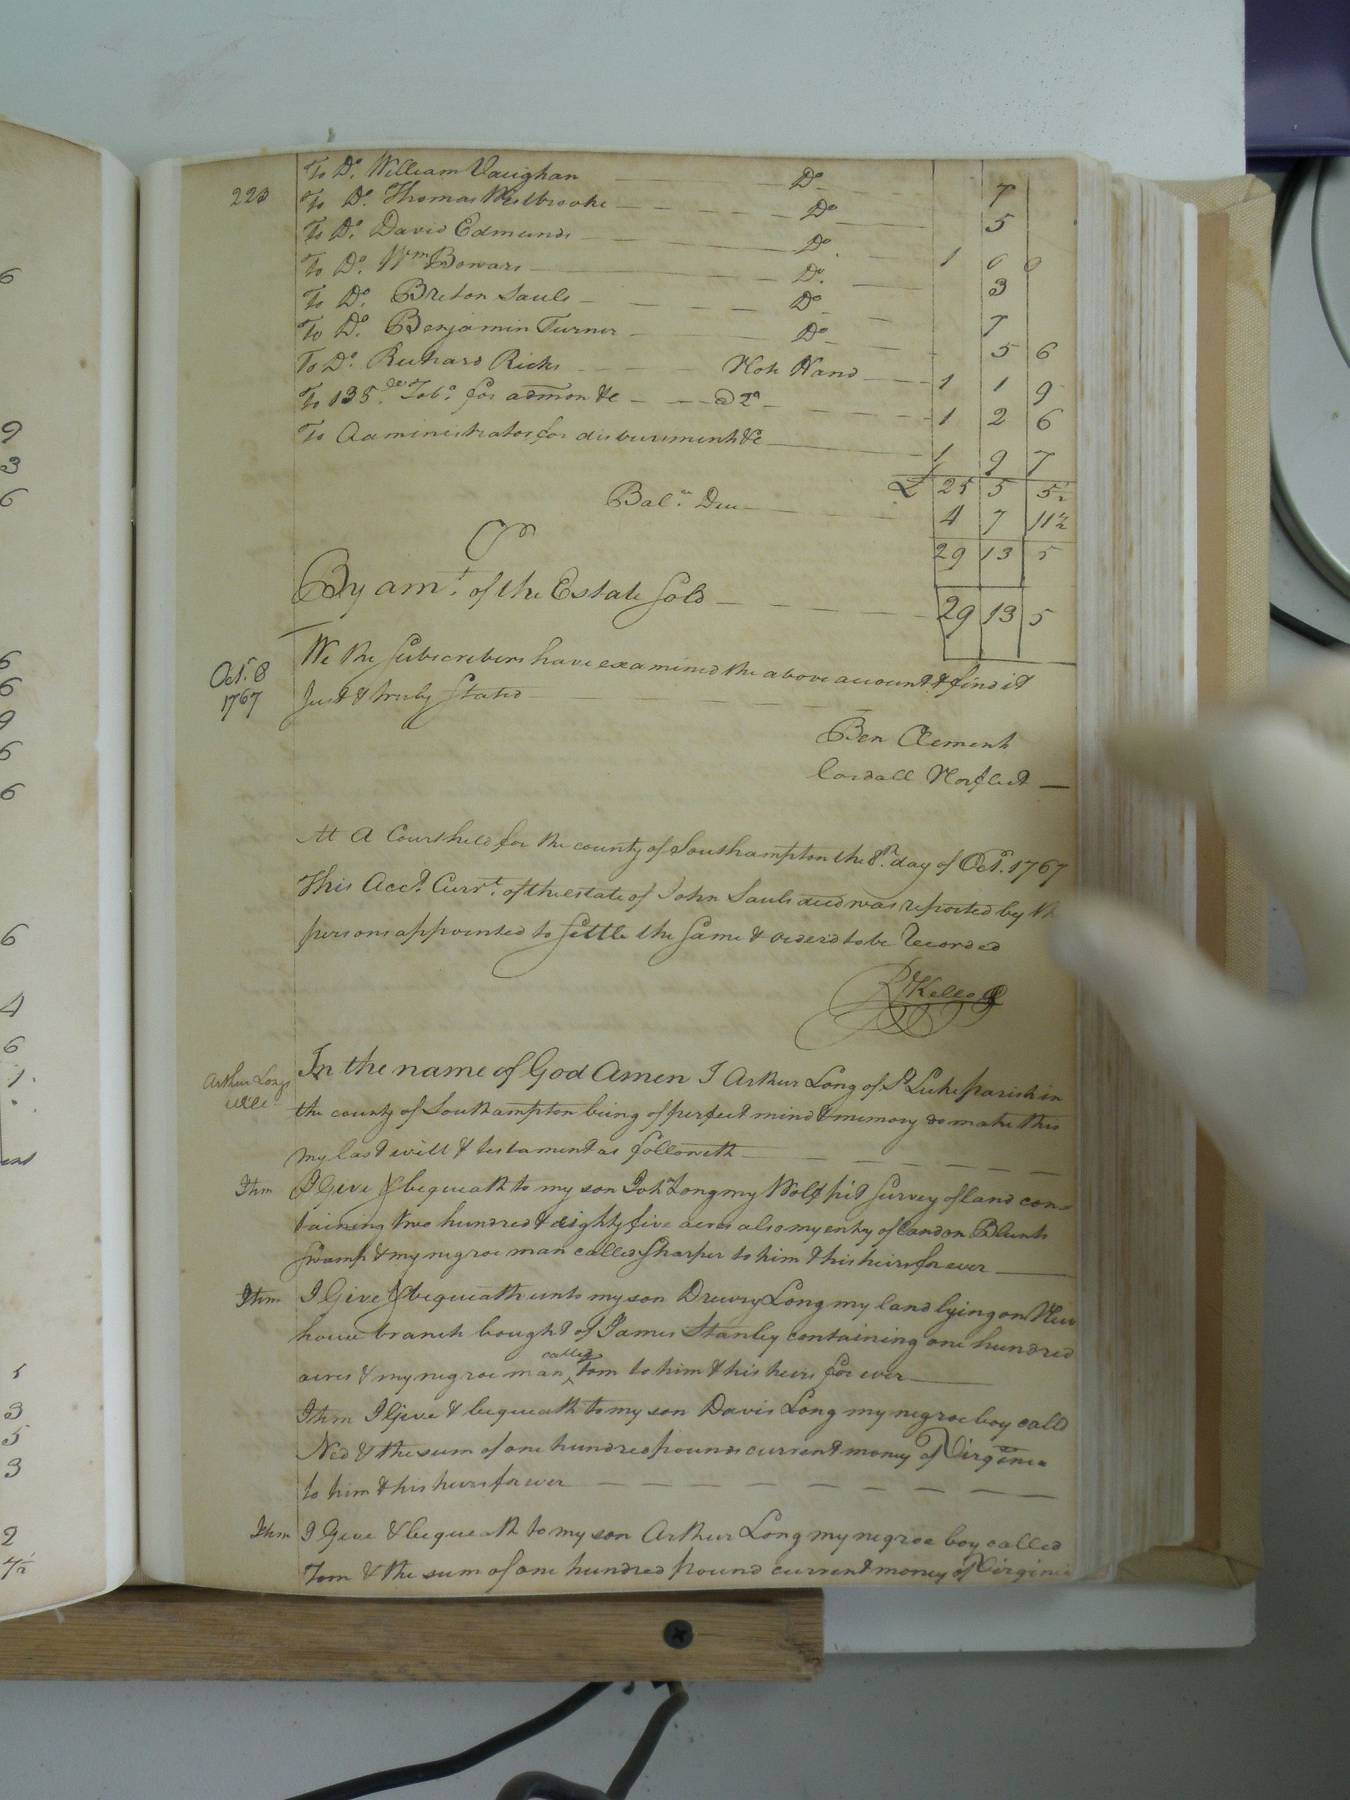 223
To Do. William Vaughan Do 7
To Do. Thomas Westbrooke Do 5
To Do. David Edmunds Do. 1 0 0
To Do. Wm Bowars Do. 3
To Do. Breton Sauls Do 7
To Do. Benjamin Turner Do 5 6
To Do. Richard Ricks Note Hand 1 1 9
To 135 Tobo. for admon &c @ 2d 1 2 6
To Administrator for disbursments &c 1 9 7
£ 25 5 5½
Bale. Due 4 7 11½
29 13 5
Cr
By amt. of the Estate Sold 29 13 5
Oct. 8
1767
We the Subscribers have examined the above account & find it
Just & truly Stated
Ben Clement
Cordall Norfleet
At A Court held for the county of Southampton the 8th. day of Oct. 1767
This Acct. Currt. of the estate of John Sauls decd was reported by the
persons appointed to Settle the Same & orderd to be Recorded
R Kello
Arthur Longs
Will
In the name of God Amen I Arthur Long of St Luke parish in
the county of Southampton being of perfect mind & memory do make this
my last will & testament as followeth
Item I Give & bequeath to my son John Long my Wolf pit Survey of land con-
taining two hundred & eighty five acres also my entry of land on Blunts
Swamp & my negroe man called Sharper to him & his heirs for ever
Item I Give & bequeath unto my son Drewry Long my land lying on Mew
house branch bought of James Stanley containing one hundred
acres & my negroe man called Tom to him & his heirs for ever
Item I Give & bequeath to my son Davis Long my negroe boy calld
Ned & the sum of one hundred pounds current money of Virginia
to him & his heirs for ever
Item I Give & bequeath to my son Arthur Long my negroe boy called
Tom & the sum of one hundred pound current money of Virginia
6
9
3
6
6
6
9
6
6
6
4
6
1.
5
3
5
3
2
7½